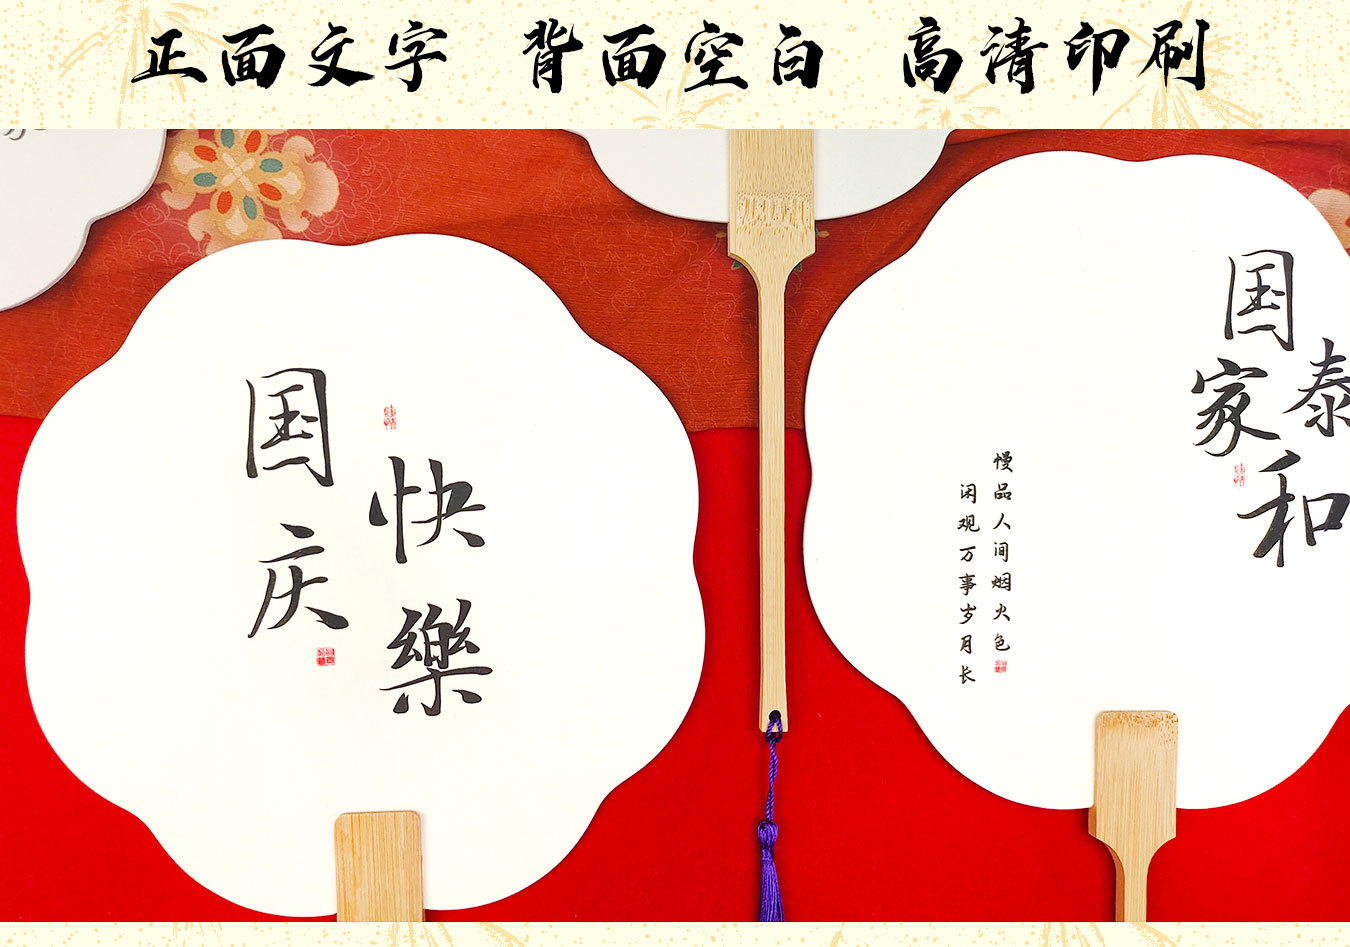 正面文字 背面空白 高清印刷
国庆
快樂
国泰
家和
慢品人间烟火色
闲观万事岁月长